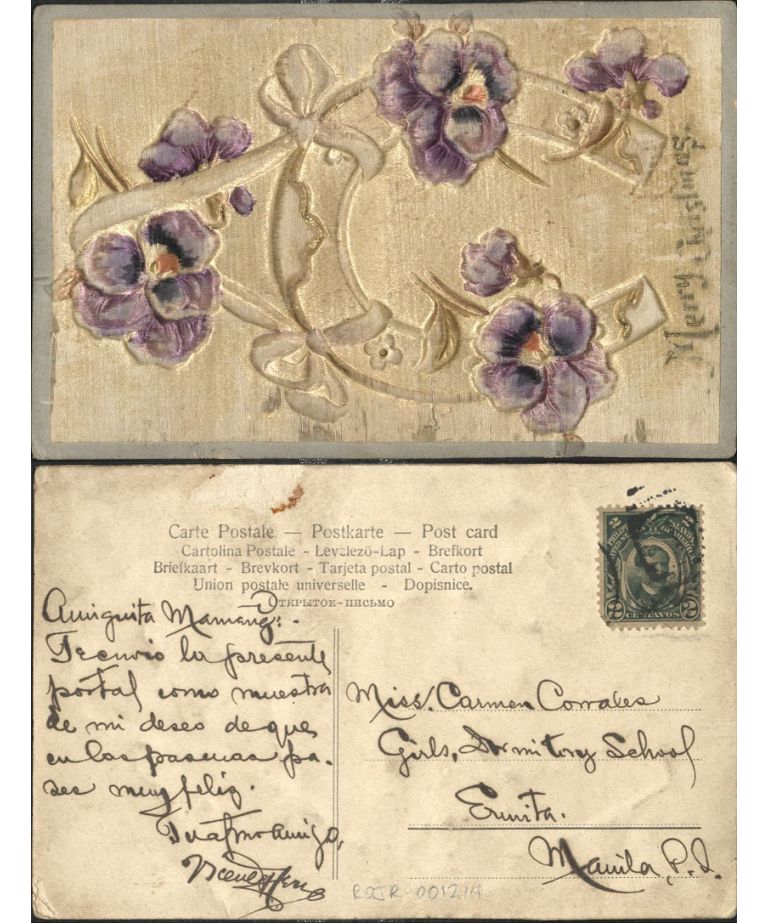 Merry Christmas.
Carte Postale — Postkarte — Post card
Cartolina Postale - Levelező-Lap - Brefkort
Briefkaart - Brevkort - Tarjeta postal - Carto postal
Union postale universelle - Dopisnice.
Открытое-письмо
2 2
CENTAVOS
Amiguita Mamang:.
Te envio la presente
portal como muestra
de mi deseo de que
en las pascuas pa-
ses muy feliz.
Tu afmo amigo,
Miss. Carmen Corrales
Girls, Dormitory School
Ermita.
Manila, P. I.
ROJR-001214